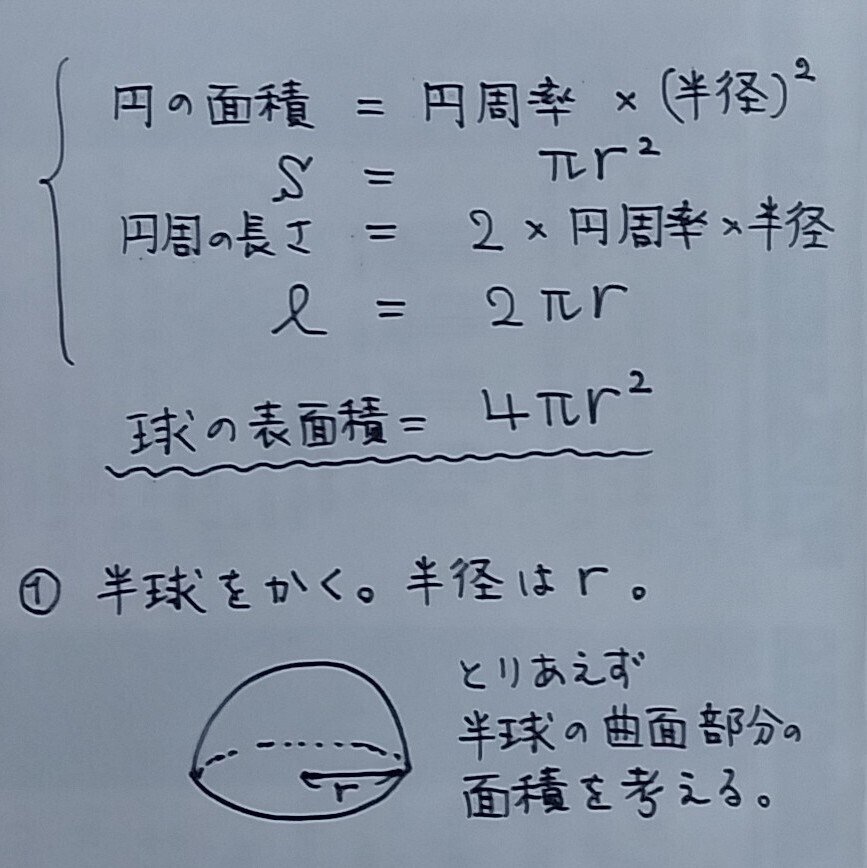 円の面積 = 円周率 × (半径)²
S = πr²
円周の長さ = 2 × 円周率 × 半径
ℓ = 2πr
球の表面積 = 4πr²
① 半球をかく。半径は r。
とりあえず
半球の曲面部分の
面積を考える。
r